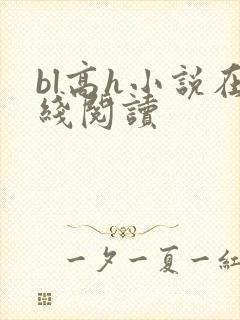 bl高h小説在
綫閱讀
一夕一夏一紅